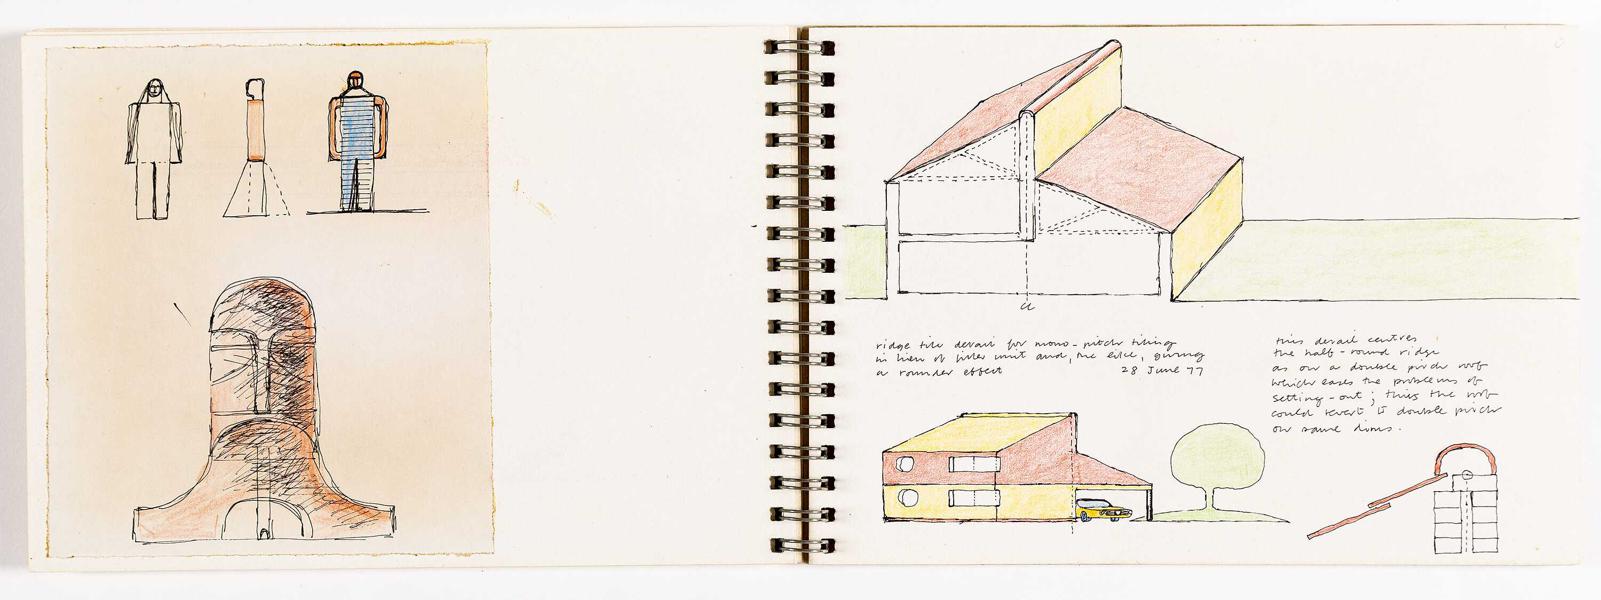 CL
ridge tile detail for mono-pitch tiling
in lieu of filler unit and, the like, giving
a rounder effect 28 June 77
this detail centres
the half-round ridge
as on a double pitch roof
which eases the problems of
setting-out; thus the roof
could revert to double pitch
on same dims.